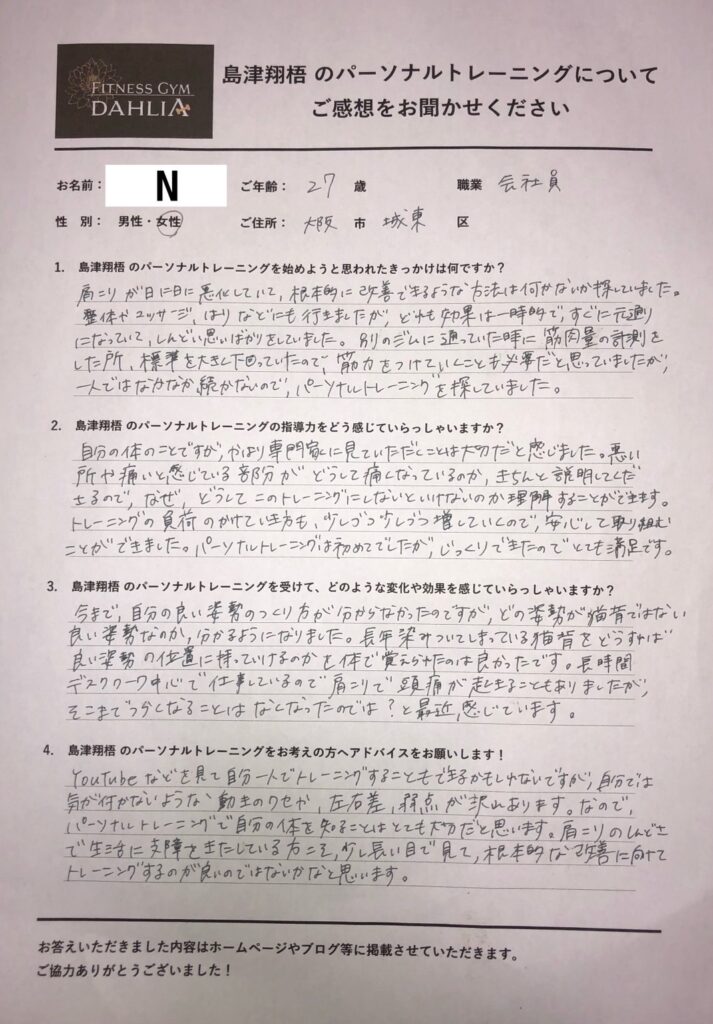 FITNESS GYM
DAHLIA
島津翔梧 のパーソナルトレーニングについて
ご感想をお聞かせください
お名前： N ご年齢： 27 歳 職業 会社員
性 別： 男性・女性 ご住所： 大阪 市 城東 区
1. 島津翔梧 のパーソナルトレーニングを始めようと思われたきっかけは何ですか？
肩こりが日に日に悪化していて、根本的に改善できるような方法は何かないか探していました。
整体やマッサージ、はりなどにも行きましたが、どれも効果は一時的で、すぐに元通り
になっていて、しんどい思いばかりをしていました。別のジムに通っていた時に筋肉量の計測を
した所、標準を大きく下回っていたので、筋力をつけていくことも必要だと思っていましたが、
一人ではなかなか続かないので、パーソナルトレーニングを探していました。
2. 島津翔梧 のパーソナルトレーニングの指導力をどう感じていらっしゃいますか？
自分の体のことですが、やはり専門家に見ていただくことは大切だと感じました。悪い
所や痛いと感じている部分がどうして痛くなっているのか、きちんと説明してくだ
さるので、なぜ、どうしてこのトレーニングにしないといけないのか理解することができます。
トレーニングの負荷のかけていき方も、少しづつ少しづつ増していくので、安心して取り組む
ことができました。パーソナルトレーニングは初めてでしたが、じっくりできたのでとても満足です。
3. 島津翔梧 のパーソナルトレーニングを受けて、どのような変化や効果を感じていらっしゃいますか？
今まで、自分の良い姿勢のつくり方が分からなかったのですが、どの姿勢が猫背ではない
良い姿勢なのか、分かるようになりました。長年染みついてしまっている猫背をどうすれば
良い姿勢の位置に持っていけるのかを体で覚えられたのは良かったです。長時間
デスクワーク中心で仕事しているので肩こりで頭痛が起きることもありましたが、
そこまでつらくなることはなくなったのでは？と最近感じています。
4. 島津翔梧 のパーソナルトレーニングをお考えの方へアドバイスをお願いします！
YouTubeなどを見て自分一人でトレーニングすることもできるかもしれないですが、自分では
気が付かないような動きのクセや、左右差、弱点が沢山あります。なので、
パーソナルトレーニングで自分の体を知ることはとても大切だと思います。肩こりのしんどさ
で生活に支障をきたしている方こそ、少し長い目で見て、根本的な改善に向けて
トレーニングするのが良いのではないかなと思います。
お答えいただきました内容はホームページやブログ等に掲載させていただきます。
ご協力ありがとうございました！